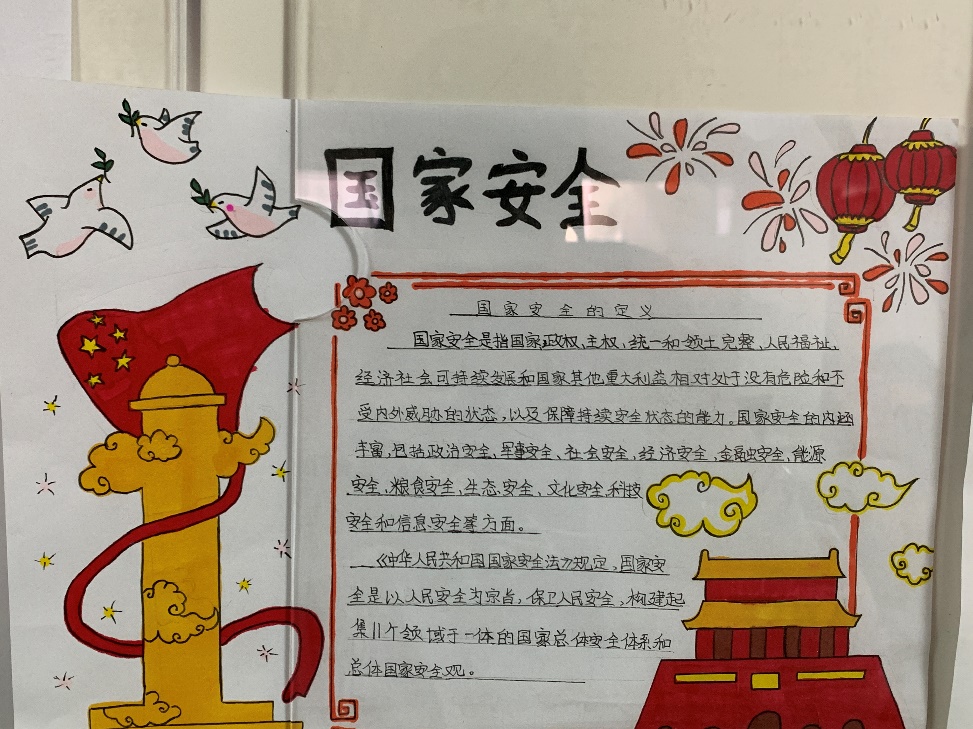 国家安全
国家安全的定义
国家安全是指国家政权、主权、统一和领土完整、人民福祉、
经济社会可持续发展和国家其他重大利益相对处于没有危险和不
受内外威胁的状态，以及保障持续安全状态的能力。国家安全的内涵
丰富，包括政治安全、军事安全、社会安全、经济安全、金融安全、能源
安全、粮食安全、生态安全、文化安全、科技
安全和信息安全等方面。
《中华人民共和国国家安全法》规定，国家安
全是以人民安全为宗旨，保卫人民安全、构建起
集11个领域于一体的国家总体安全体系和
总体国家安全观。